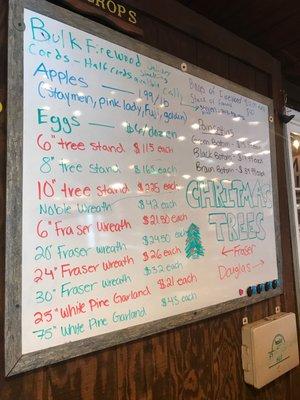 DROPS
Bulk Firewood
Cords - Half Cords
Apples — 1.99/lb
(Staymen, pink lady, Fuji, golden)
Eggs — $6/dozen
6' tree stand $115 each
8' tree stand $165 each
10' tree stand $225 each
Noble Wreath $42 each
6" Fraser Wreath $21.50 each
20" Fraser wreath $24.50 each
24" Fraser Wreath $26 each
30" Fraser Wreath $32 each
25' White Pine Garland $21 each
75' White Pine Garland $45 each
Poinsettias
Green Bottom -
Black Bottom -
Brown Bottom -
CHRISTMAS
TREES
← Fraser
Douglas →